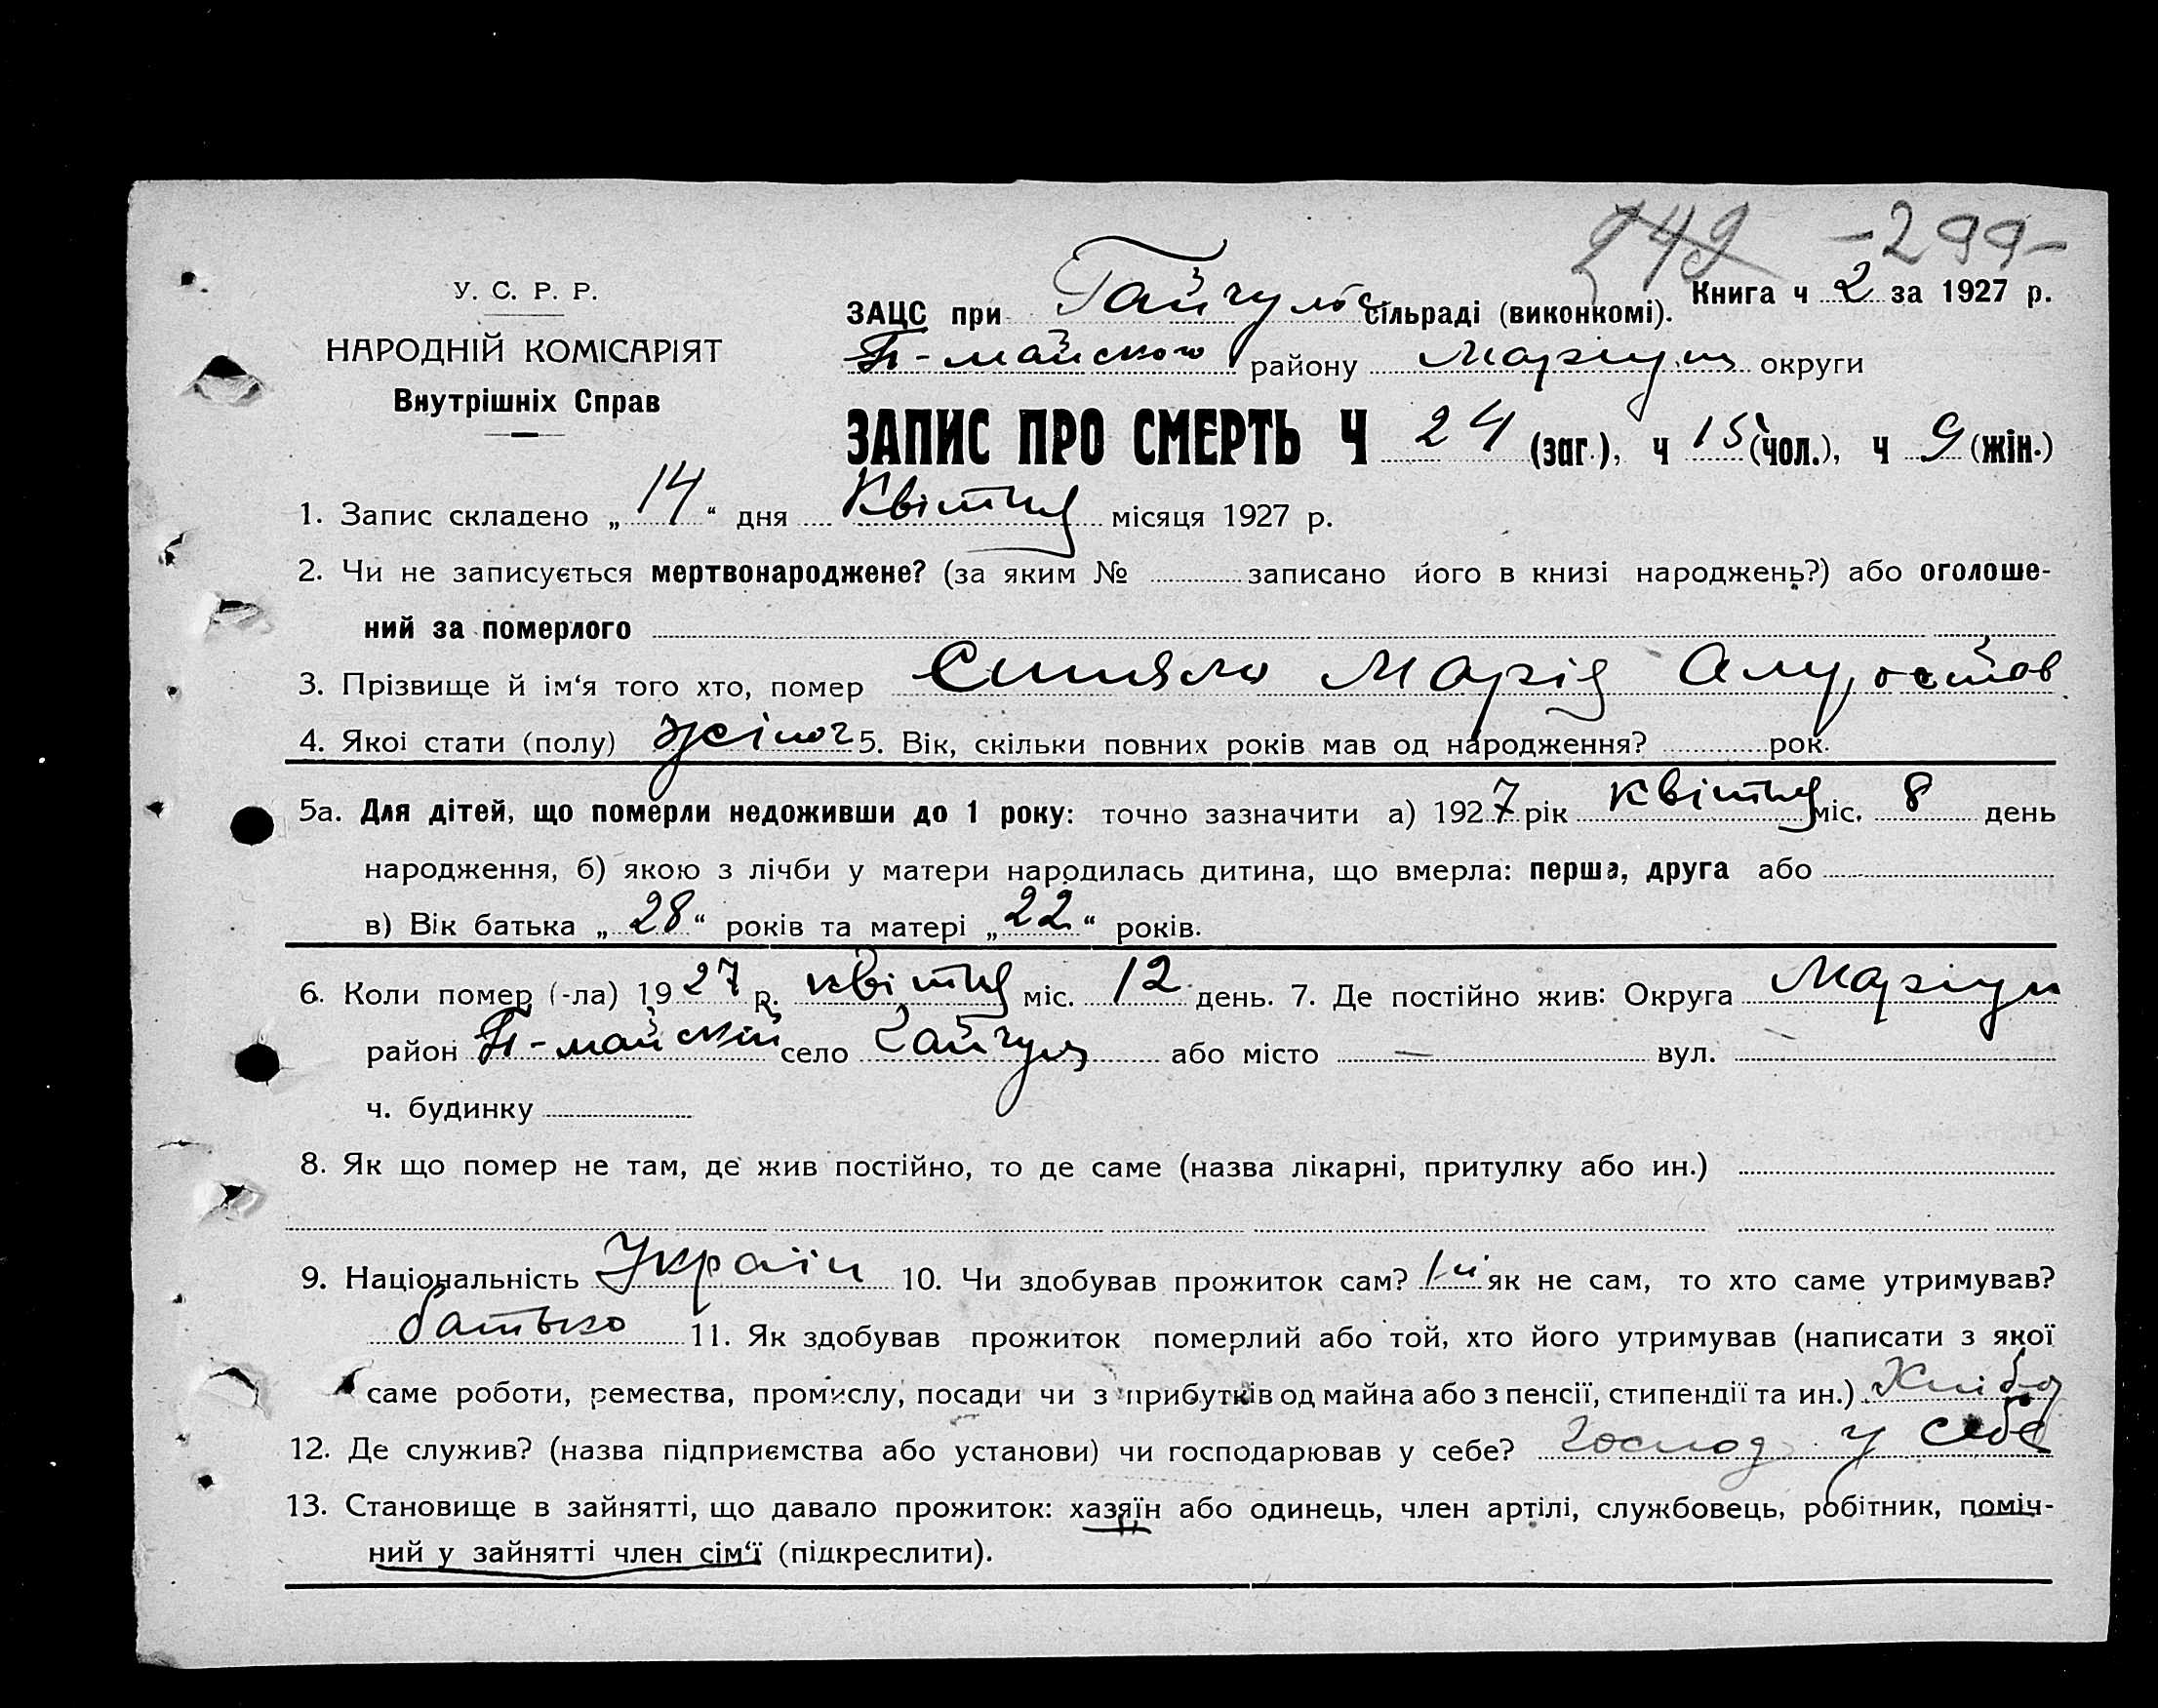 249 -299-
У. С. Р. Р.
НАРОДНІЙ КОМІСАРІЯТ
Внутрішніх Справ
Книга ч 2 за 1927 р.
ЗАЦС при Гайчулос сільраді (виконкомі).
П-майского району Маріуп округи
ЗАПИС ПРО СМЕРТЬ Ч 24 (заг.), ч 15 (чол.), ч 9 (жін.)
1. Запис складено „14“ дня Квітня місяця 1927 р.
2. Чи не записується мертвонароджене? (за яким № записано його в книзі народжень?) або оголоше-
ний за померлого
3. Прізвище й ім‘я того хто, помер Марія
4. Якої стати (полу) жіноч 5. Вік, скільки повних років мав од народження? рок.
5а. Для дітей, що померли недоживши до 1 року: точно зазначити а) 1927 рік квітня міс. 8 день
народження, б) якою з лічби у матери народилась дитина, що вмерла: перша, друга або
в) Вік батька „28“ років та матері „22“ років.
6. Коли помер (-ла) 1927 р. квітня міс. 12 день. 7. Де постійно жив: Округа Маріуп
район П-майский село Гайчул або місто — вул.
ч. будинку
8. Як що помер не там, де жив постійно, то де саме (назва лікарні, притулку або ин.)
9. Національність Україн 10. Чи здобував прожиток сам? Ні як не сам, то хто саме утримував?
батько 11. Як здобував прожиток померлий або той, хто його утримував (написати з якої
саме роботи, ремества, промислу, посади чи з прибутків од майна або з пенсії, стипендії та ин.) Хлібо
12. Де служив? (назва підприємства або установи) чи господарював у себе? Господ у себе
13. Становище в зайнятті, що давало прожиток: хазяїн або одинець, член артілі, службовець, робітник, поміч-
ний у зайнятті член сім‘ї (підкреслити).